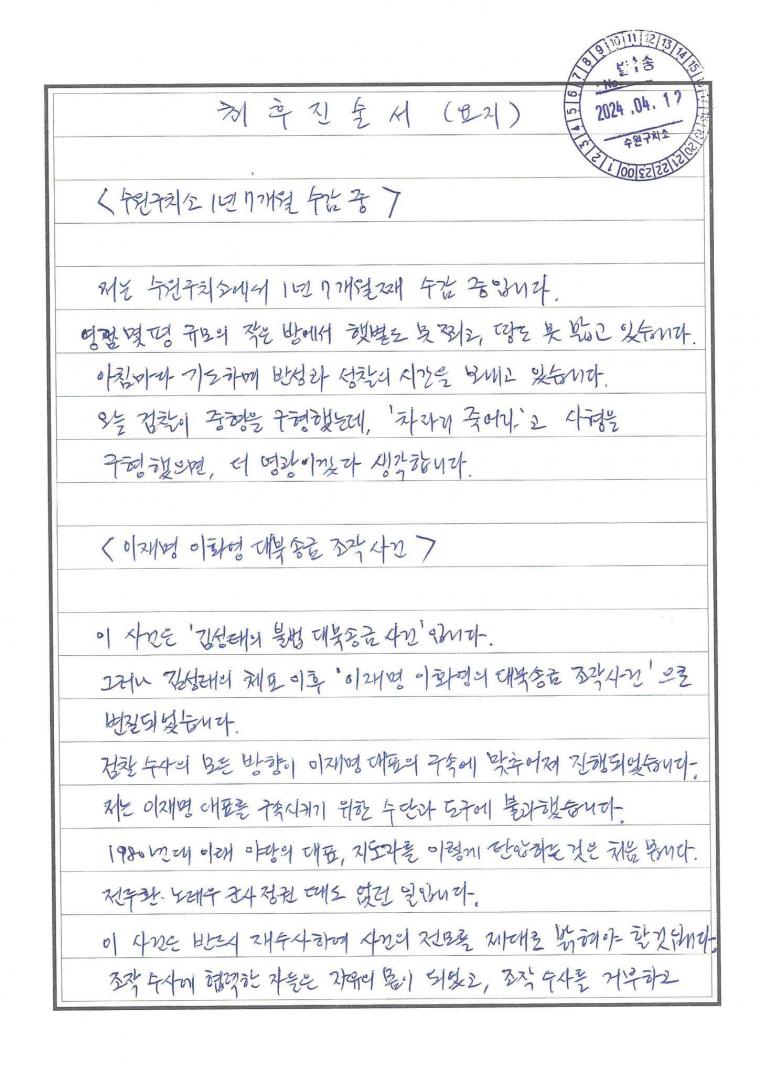 최후진술서 (요지)
발송
No.
2024.04.17
수원구치소
<수원구치소 1년 7개월 수감 중>
저는 수원구치소에서 1년 7개월째 수감 중입니다.
영점 몇 평 규모의 작은 방에서 햇볕도 못 쬐고, 땅도 못 밟고 있습니다.
아침마다 기도하며 반성과 성찰의 시간을 보내고 있습니다.
오늘 검찰이 중형을 구형했는데, '차라리 죽어라'고 사형을
구형했으면, 더 영광이겠다 생각합니다.
<이재명 이화영 대북송금 조작사건>
이 사건은 '김성태의 불법 대북송금 사건'입니다.
그러나 김성태의 체포 이후 '이재명 이화영의 대북송금 조작사건'으로
변질되었습니다.
검찰 수사의 모든 방향이 이재명 대표의 구속에 맞추어져 진행되었습니다.
저는 이재명 대표를 구속시키기 위한 수단과 도구에 불과했습니다.
1980년대 이래 야당의 대표, 지도자를 이렇게 탄압하는 것은 처음 봅니다.
전두환·노태우 군사정권 때도 없던 일입니다.
이 사건은 반드시 재수사하여 사건의 전모를 제대로 밝혀야 할 것입니다.
조작 수사에 협력한 자들은 자유의 몸이 되었고, 조작 수사를 거부하고